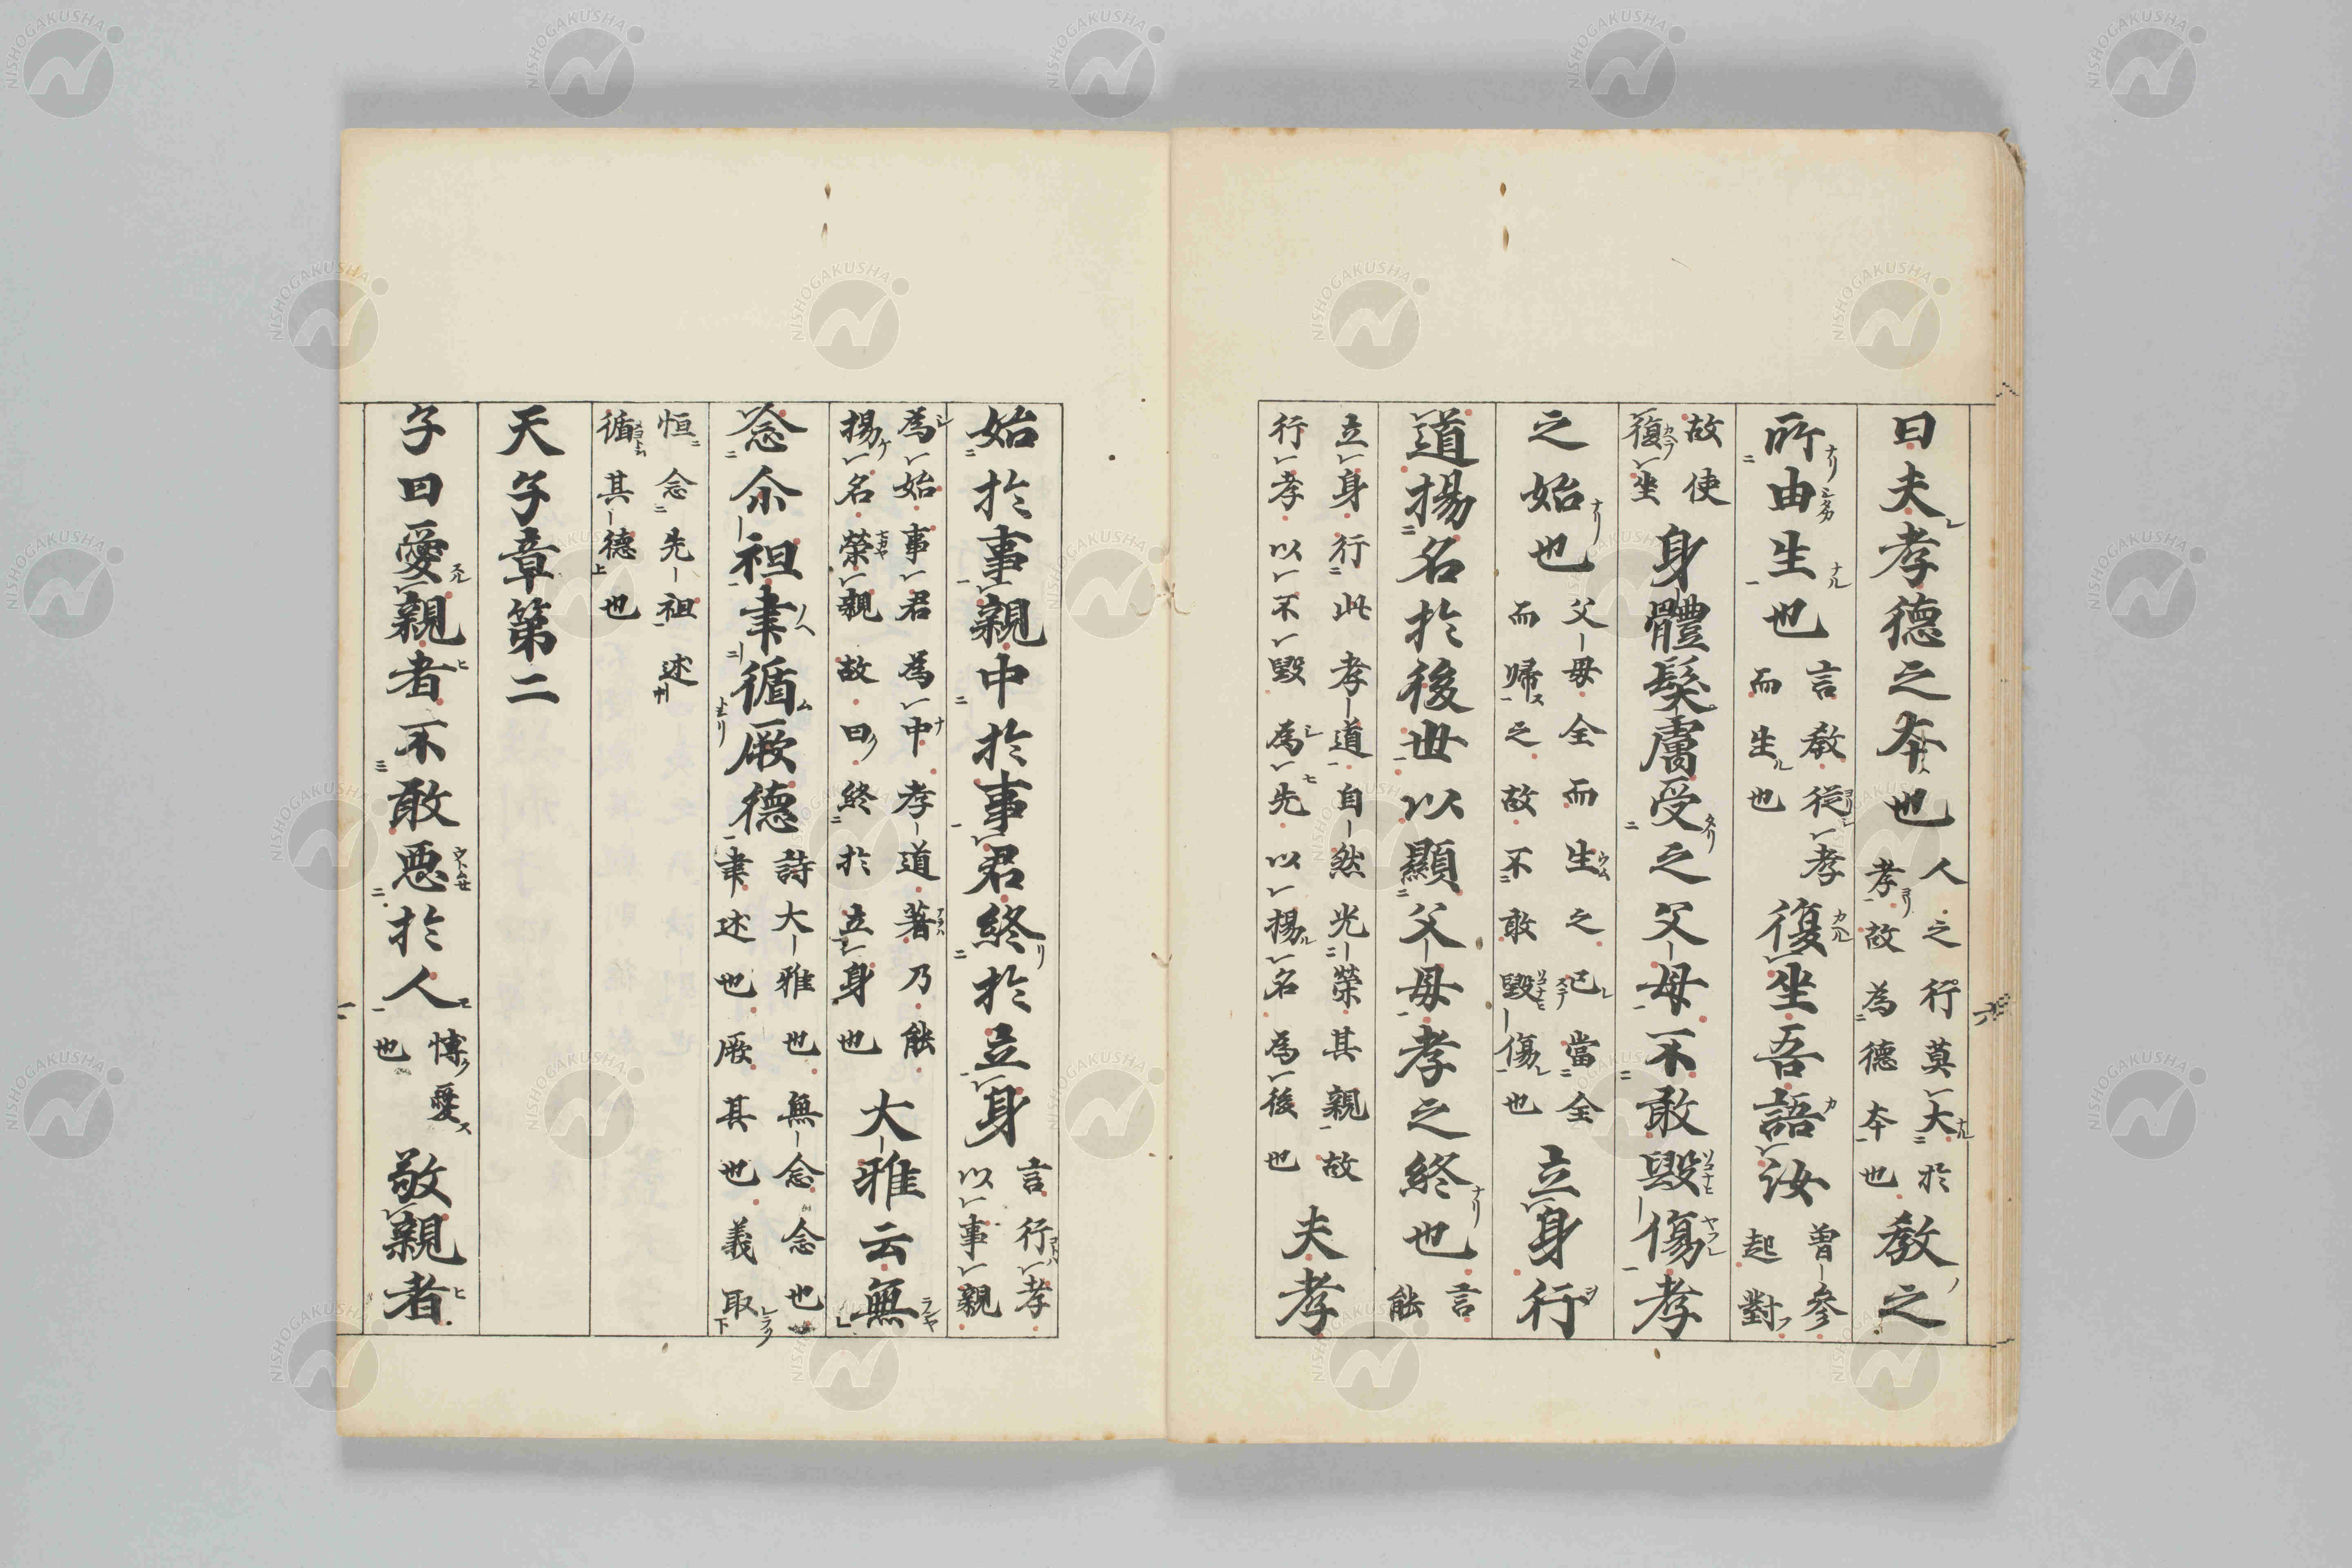 曰夫孝德之夲也人之行莫大於孝故為德夲也教之
所由生也言教從孝而生也復坐吾語汝曽參起對
故使復坐身體髮膚受之父母不敢毀傷孝
之始也父母全而生之己當全而歸之故不敢毀傷也立身行
道揚名於後世以顯父母孝之終也言能
立身行此孝道自然光榮其親故行孝以不毀為先以揚名為後也夫孝
始於事親中於事君終於立身言行孝以事親
為始事君為中孝道著乃能揚名榮親故曰終於立身也大雅云無
念尒祖聿循厥德詩大雅也無念念也聿述也厥其也義取
恒念先祖述循其德也
天子章第二
子曰愛親者不敢惡於人博愛也敬親者
六
NISHOGAKUSHA